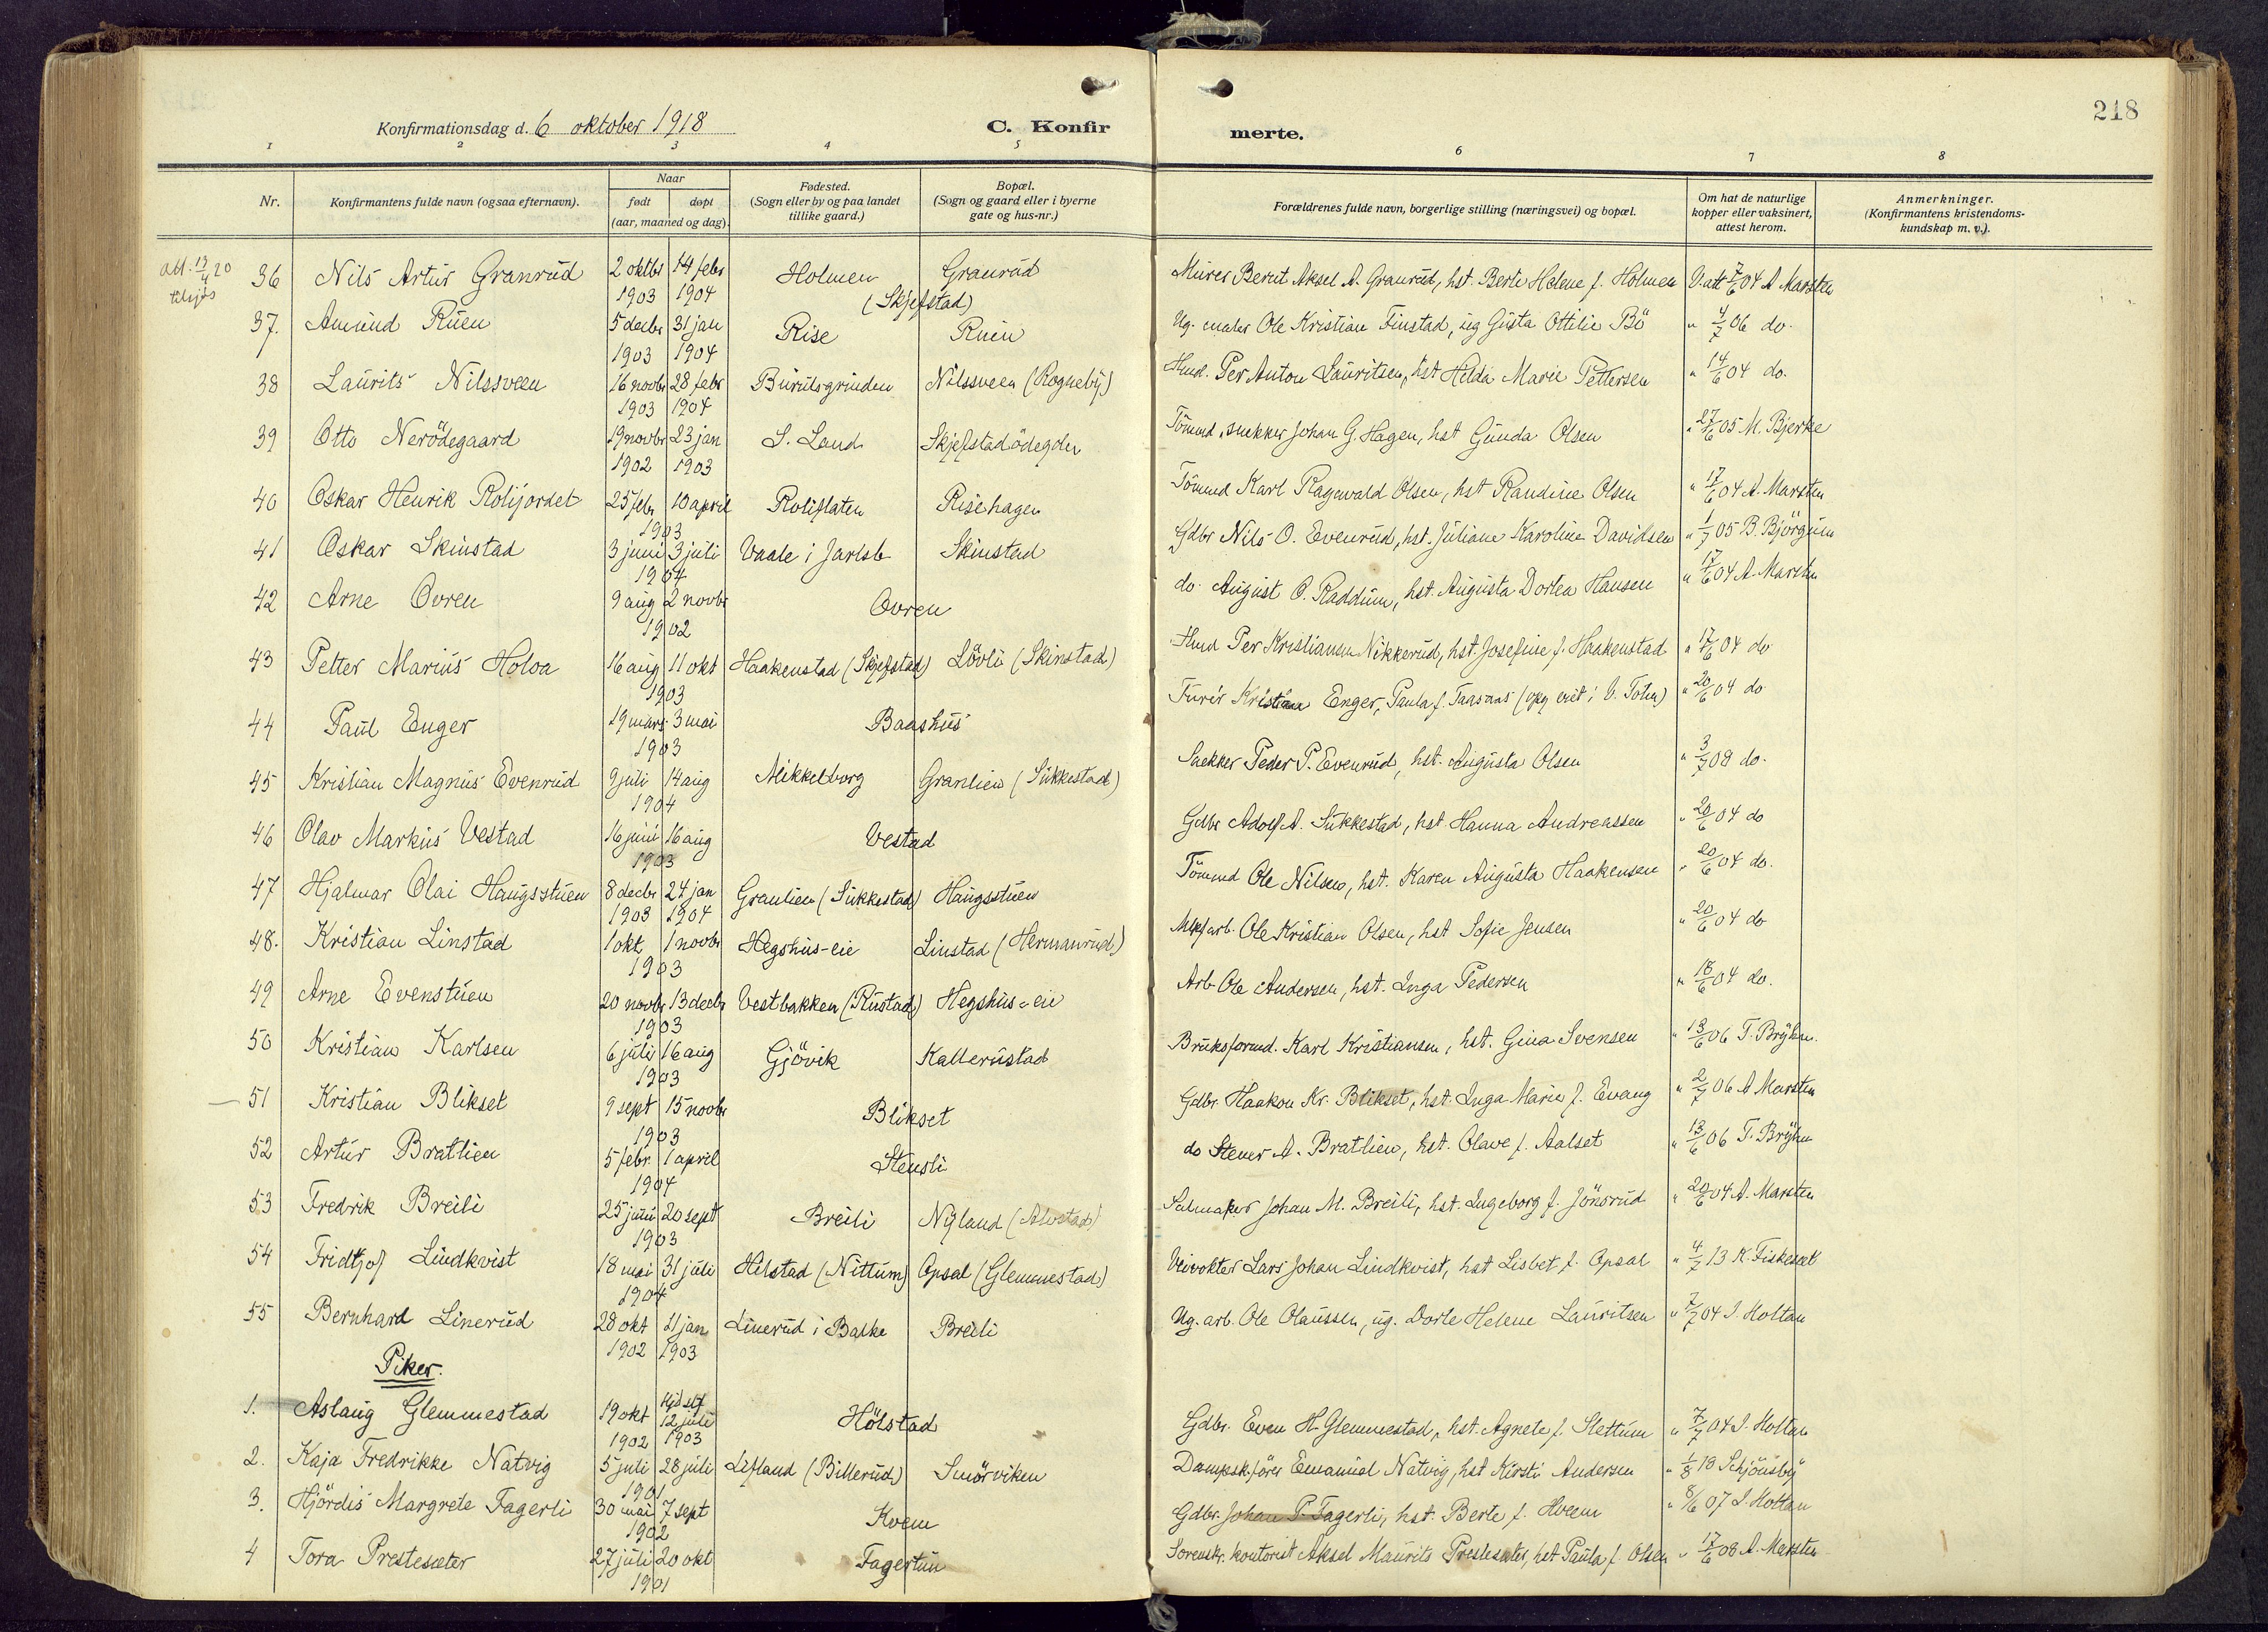 218
Konfirmationsdag d. 6 oktober 1918
C. Konfir merte.
1 2 3 4 5 6 7 8
Nr.
Konfirmantens fulde navn (ogsaa efternavn).
Naar
født døpt
(aar, maaned og dag).
Fødested.
(Sogn eller by og paa landet
tillike gaard.)
Bopæl.
(Sogn og gaard eller i byerne
gate og hus-nr.)
Forældrenes fulde navn, borgerlige stilling (næringsvei) og bopæl.
Om hat de naturlige
kopper eller vaksinert,
attest herom.
Anmerkninger.
(Konfirmantens kristendoms-
kundskap m. v.).
att. 13/4 20
tilsjøs
36 Nils Artur Granrud 2 oktbr 14 febr Holmen Granrud Murer Bernt Aksel A. Granrud, hst. Berte Helene f. Holmen V. att 7/6 04 A Marsten
1903 1904 (Skjefstad)
37. Amund Ruen 5 decbr 31 jan Rise Ruen Ug. maler Ole Kristian Finstad, ug Gusta Ottilie Bö " 4/7 06 do.
1903 1904
38 Laurits Nilssveen 16 novbr 28 febr Burulsgrinden Nilssveen (Rogneby) Hmd. Per Anton Lauritsen, hst Hilda Marie Pettersen " 14/6 04 do.
1903 1904
39 Otto Nerödegaard 19 novbr 23 jan S. Land Skjefstadödegden Tömmd, snekker Johan G. Hagen, hst Gunda Olsen " 27/6 05 M. Bjerke
1902 1903
40 Oskar Henrik Rolijordet 25 febr 10 april Roliflaten Risehagen Tömmd Karl Ragnvald Olsen, hst Randine Olsen " 17/6 04 A. Marsten
1903
41 Oskar Skinstad 3 juni 3 juli Vaale i Jarlsb Skinstad Gdbr Nils O. Evenrud, hst. Juliane Karoline Davidsen " 1/7 05 B. Björgum
1904
42 Arne Ovren 9 aug 2 novbr Ovren do August O. Raddum, hst. Augusta Dortea Hansen " 17/6 04 A. Marsten
1902
43 Petter Marius Holoa 16 aug 11 okt Haakenstad (Skjefstad) Lövli (Skinstad) Hmd Per Kristiansen Nikkerud, hst. Josefine f. Haakenstad " 17/6 04 do
1903
44 Paul Enger 19 mars 3 mai Baashus Furér Kristian Enger, Paula f. Taasaas " 20/6 04 do.
1903
45 Kristian Magnus Evenrud 9 juli 14 aug Mikkelborg Granlien (Sukkestad) Snekker Peder P. Evenrud, hst. Augusta Olsen " 3/7 08 do.
1904
46 Olav Markus Vestad 16 juni 16 aug Vestad Gdbr Adolf A. Sukkestad, hst. Hanna Andreassen " 20/6 04 do
1903
47 Hjalmar Olai Haugsstuen 8 decbr 24 jan Granlien (Sukkestad) Haugsstuen Tömmd Ole Nilsen, hst. Karen Augusta Haakensen " 20/6 04 do.
1903 1904
48. Kristian Linstad 1 okt 1 novbr Hegshus-eie Linstad (Hermanrud) Mlkfarb. Ole Kristian Olsen, hst Sofie Jensen " 20/6 04 do
1903
49 Arne Evenstuen 20 novbr 13 decbr Vestbakken (Rustad) Hegshus-eie Arb. Ole Andersen, hst. Inga Pedersen " 18/6 04 do.
1903
50 Kristian Karlsen 6 juli 16 aug Gjövik Kallerustad Bruksformd. Karl Kristiansen, hst. Gina Svensen " 13/6 06 T. Bryhn.
1903
51 Kristian Blikset 9 sept 15 novbr Blikset Gdbr. Haakon Kr. Blikset, hst. Inga Marie f. Evang " 2/7 06 A Marsten
1903
52 Artur Bratlien 5 febr. 1 april Stensli do Stener A. Bratlien, hst. Olave f. Aalset " 13/6 06 T. Bryhn
1904
53 Fredrik Breili 25 juni 20 sept Breili Nyland (Alvstad) Salmaker Johan M. Breili, hst. Ingeborg f. Jönsrud " 20/6 04 A. Marsten
1903
54 Fridtjof Lindkvist 18 mai 31 juli Hilstad (Nittum) Opsal (Glemmestad) Veivokter Lars Johan Lindkvist, hst Lisbet f. Opsal " 4/7 13 K. Fiskeset
1904
55 Bernhard Linerud 28 okt 21 jan Linerud i Balke Breili Ug. arb. Ole Olaussen, ug. Dorte Helene Lauritsen " 7/7 04 I. Holtan
1902 1903
Piker.
1. Aslaug Glemmestad 19 okt 12 juli Hölstad Gdbr. Even H. Glemmestad, hst. Agnete f. Slettum " 7/7 04 I. Holtan
1902 1903
2. Kaja Fredrikke Natvig 5 juli 28 juli Lifland (Billerud) Smörviken Dampsk.förer Emanuel Natvig, hst Kirsti Andersen " 1/8 18 Schjönsby
1901
3. Hjördis Margrete Fagerli 30 mai 7 sept Kvem Gdbr. Johan P. Fagerli, hst. Berte f. Hveem " 8/6 07 I. Holtan
1902
4 Tora Prestesæter 27 juli 20 okt Fagertun Sorenskr. kontorist Aksel Maurits Prestesæter, hst Paula f. Olsen " 17/6 08 A. Marsten
1901